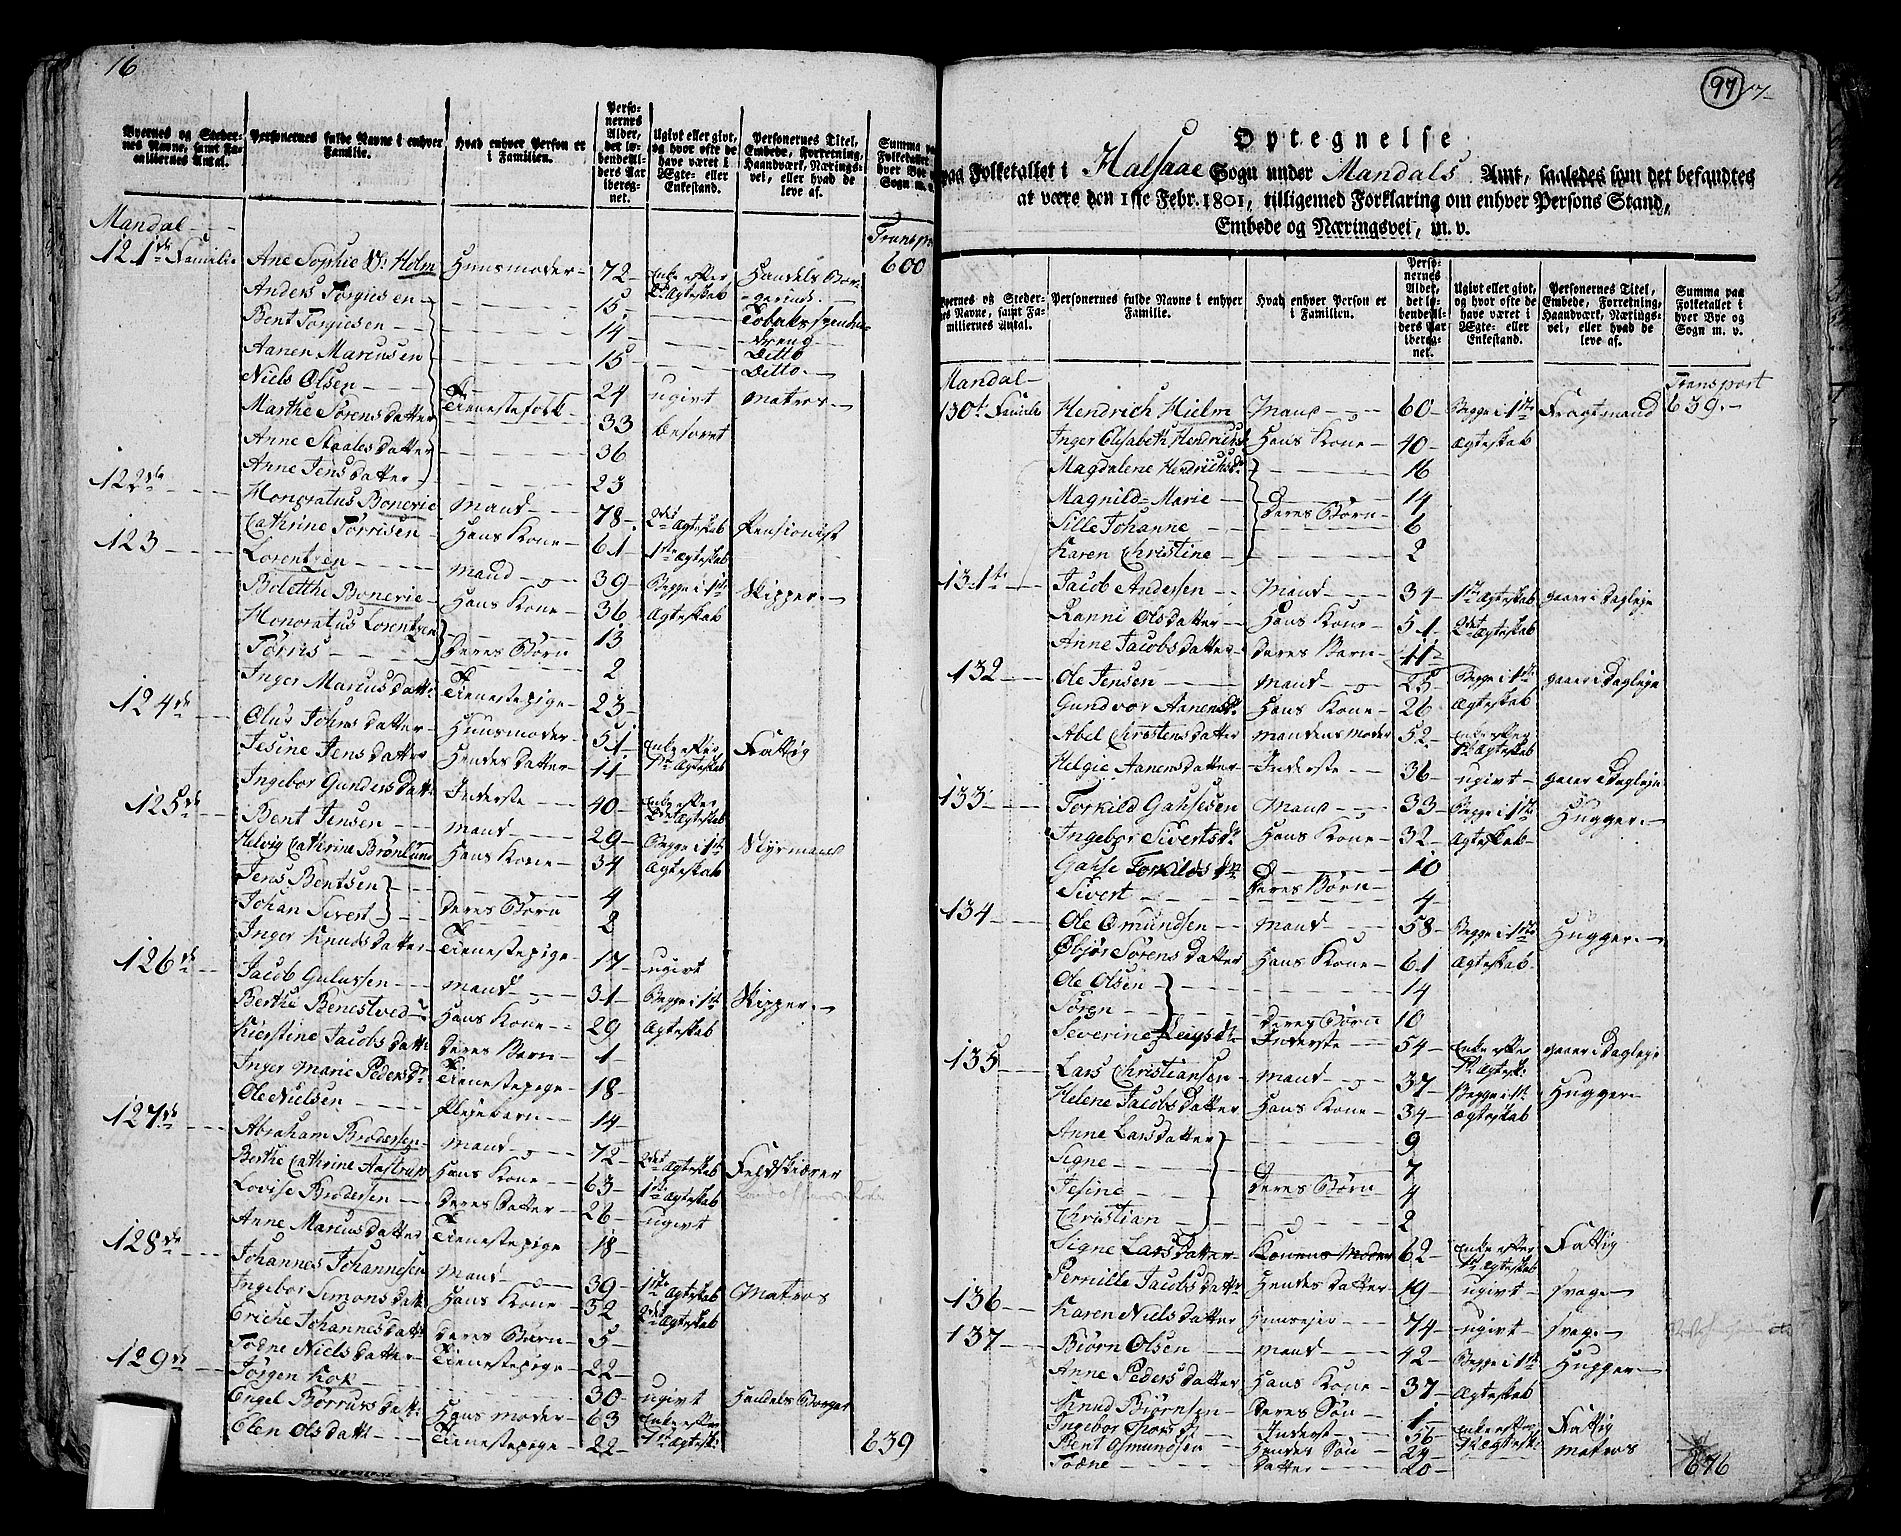 16
Byernes og Steder- nes Navne, samt Fa- miliernes Antal.
Personernes fulde Navne i enhver Familie.
Hvad enhver Person er i Familien.
Perso- nernes Alder, det lø- bende Al- ders Aar ibereg- net.
Ugivt eller givt, og hvor ofte de have været i Ægte- eller Enkestand.
Personernes Titel, Embede, Forretning, Haandværk, Nærings- vei, eller hvad de leve af.
Summa paa Folketallet i hver Bye og Sogn m. v.
Mandal - - Transport
121de Familie Ane Sophie Holm Huusmoder - 72 - Enke efter 2det Ægteskab Handels Bor- gerinde - 600
Anders Torgiesen - - - - 15 - - -
Bent Torgiesen - - - - 14 - - - Tobakspinder dreng
Aanen Marcusen - - - 15 - - - Ditto
Niels Olsen - - - 24 ugivt matros -
Marthe Sørens datter Tienestefolk - 33 besovet
Anne Staales datter - - - 36
Anne Jens datter - - - 23
122de - - Honoratus Bonerie mand - - 78 - 2det Ægteskab Pensionist
Cathrine Torrisen - Hans Kone - 61 - 1ste Ægteskab
123 - - Lorentzen - - mand - - 39 - Begge i 1ste Skipper -
Bolethe Bonerie - Hans Kone - 36 Ægteskab
Honoratus Lorentzen - - - 13
Torris - - - Deres Børn 2
Inger Marcus datt: Tienestepige - 23 -
124de - - Olus Johns datter - Huusmoder - 51 - Enke efter 1ste Ægteskab Fattig
Jesine Jens datter Hendes datter - 11 -
Ingebor Gunders datt: Inderste - - 40 - Enke efter 2det Ægteskab
125de Bent Jensen - - mand - - 29 - Begge i 1ste Styrmand
Helvig Cathrine Brønlund Hans Kone - - 34 Ægteskab
Jens Bentsen - - - 4
Johan Sivert - - Deres Børn 2
Inger Knuds datter - Tienestepige - 17 - ugivt
126de - - Jacob Gulussen - - mand - - 31 - Begge i 1ste Skipper -
Berthe Benestved - Hans Kone - - 29 Ægteskab
Kierstine Jacobs datt: Deres Barn - 1 -
Inger Marie Peders d: Tienestepige - 18 -
Ole Nielsen - - - Pleiebarn - - 14 -
127de - - Abraham Brodersen - mand - - 72 - 2det Ægteskab Feldskiærer
Berthe Cathrine Aastrup Hans Kone - - 63 - 1ste Ægteskab
Lovise Brodersen - - Deres datter - 26 - ugivt
Anne Marcus datter Tienestepige 18 -
128de - - Johannes Johannesen mand - - 39 - 1ste Ægteskab Matros
Ingebor Simons datt: Hans Kone - 32 2det Ægteskab
Eriche Johannes datt: Deres Børn - 5 -
Todne Niels datter - Tienestepige - 22 -
129de - Jørgen Kok - - - - 30 - ugivt Handels Borger
Engel Børrus datt: Hans moder - 63 Enke efter 1ste Ægtesk:
Elen Ols datt: - Tienestepige - 22 - 639
97
17
Optegnelse
paa Folketallet i Halsaae Sogn under Mandals Amt, saaledes som det befandtes
at være den 1ste Febr. 1801, tilligemed Forklaring om enhver Persons Stand,
Embede og Næringsvei, m. v.
Byernes og Steder- nes Navne, samt Fa- miliernes Antal.
Personernes fulde Navne i enhver Familie.
Hvad enhver Person er i Familien.
Perso- nernes Alder, det lø- bende Al- ders Aar ibereg- net.
Ugivt eller givt, og hvor ofte de have været i Ægte- eller Enkestand.
Personernes Titel, Embede, Forretning, Haandværk, Nærings- vei, eller hvad de leve af.
Summa paa Folketallet i hver Bye og Sogn m. v.
Mandal - Transport
130te Familie Hendrich Hielm - Mand - - 60 - Begge i 1ste Fragtmand 639 -
Inger Elisabeth Hendrichs: Hans Kone - 40 - Ægteskab
Magdalene Hendrichsd: - - - 16
Magnild-Marie - - - - 14
Sille Johanne - - Deres Børn - 6
Karen Christine - - - 2
131te Jacob Andersen - Mand - - 34 - 1ste Ægteskab gaaer i Dagleje
Ranni Olsdatter - - Hans Kone - 51 - 2det Ægteskab
Anne Jacobs datter - Deres Barn - 11 -
132 - - Ole Jensen - - - mand - - 25 - Begge i 1ste gaaer i Dagleje
Gundvor Aanensd: Hans Kone - 26 Ægteskab
Abel Christens datter mandens moder 52 - Enke efter 1ste Ægteskab
Helgie Aanens datter - Inderste - - 36 - ugivt - gaaer i Dagleje
133 - - Torkild Gahsesen Mand - - 33 - Begge i 1ste Hugger -
Ingebor Siverts d: Hans Kone - 32 - Ægteskab -
Gahse Torkilds d: - - - 10
Sivert - - - Deres Børn - 4
134 - - Ole Omundsen - mand - - 58 - Begge i 1ste Hugger -
Obiør Sørens datter Hans Kone - 61 Ægteskab -
Ole Olsen - - - - 14
Søren - - - Deres Børn 10
Severine d: Inderste - - 54 - Enke efter 1ste Ægtesk: gaaer i Dagleje
135 - - Lars Christiansen - mand - - 37 - Begge i 1ste Hugger -
Helene Jacobs datter Hans Kone - 34 - Ægteskab
Anne Lars datter - - - 9
Signe - - - - 7
Jesine - - - Deres Børn 4
Christian - - - 2
Signe Lars datter - Konens Moder 62 - Enke efter 1ste Ægteskab Fattig
Pernille Jacobs datt: Hendes datter - 19 - ugivt - svag -
136 - - Karen Niels datter Huusejer - - 74 - ugivt - svag -
137 Biørn Olsen - mand - - 42 - Begge i 1ste Hugger -
Anne Peders datter Hans Kone - 37 - Ægteskab
Knud Biørnsen - Deres Søn - 1 -
Ingebor d: Inderst - - 56 - Enke efter 1ste Ægtesk: Fattig
Bent Osmundsen Hendes Søn 29 - - - matros
Todne - - - Datter - - 20 - 676